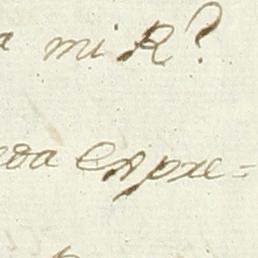 a mi R?
eda Expre=